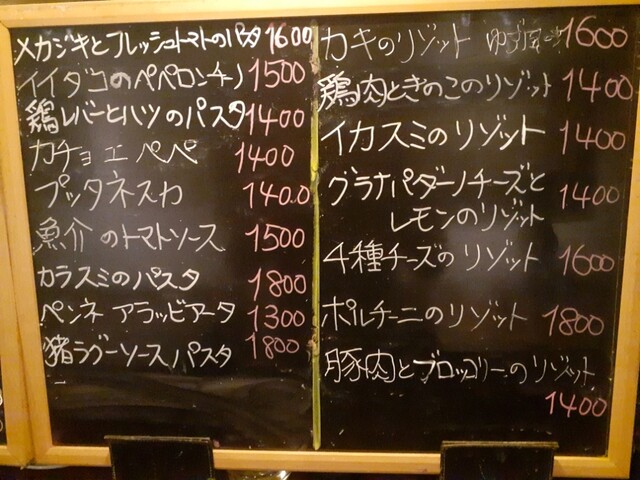 メカジキとフレッシュトマトのパスタ 1600
イイダコのペペロンチーノ 1500
鶏レバーとハツのパスタ 1400
カチョエペペ 1400
プッタネスカ 1400
魚介のトマトソース 1500
カラスミのパスタ 1800
ペンネアラッビアータ 1300
猪ラグーソースパスタ 1800
カキのリゾット ゆず 1600
鶏肉ときのこのリゾット 1400
イカスミのリゾット 1400
グラナパダーノチーズと 1400
レモンのリゾット
4種チーズのリゾット 1600
ポルチーニのリゾット 1800
豚肉とブロッコリーのリゾット
1400